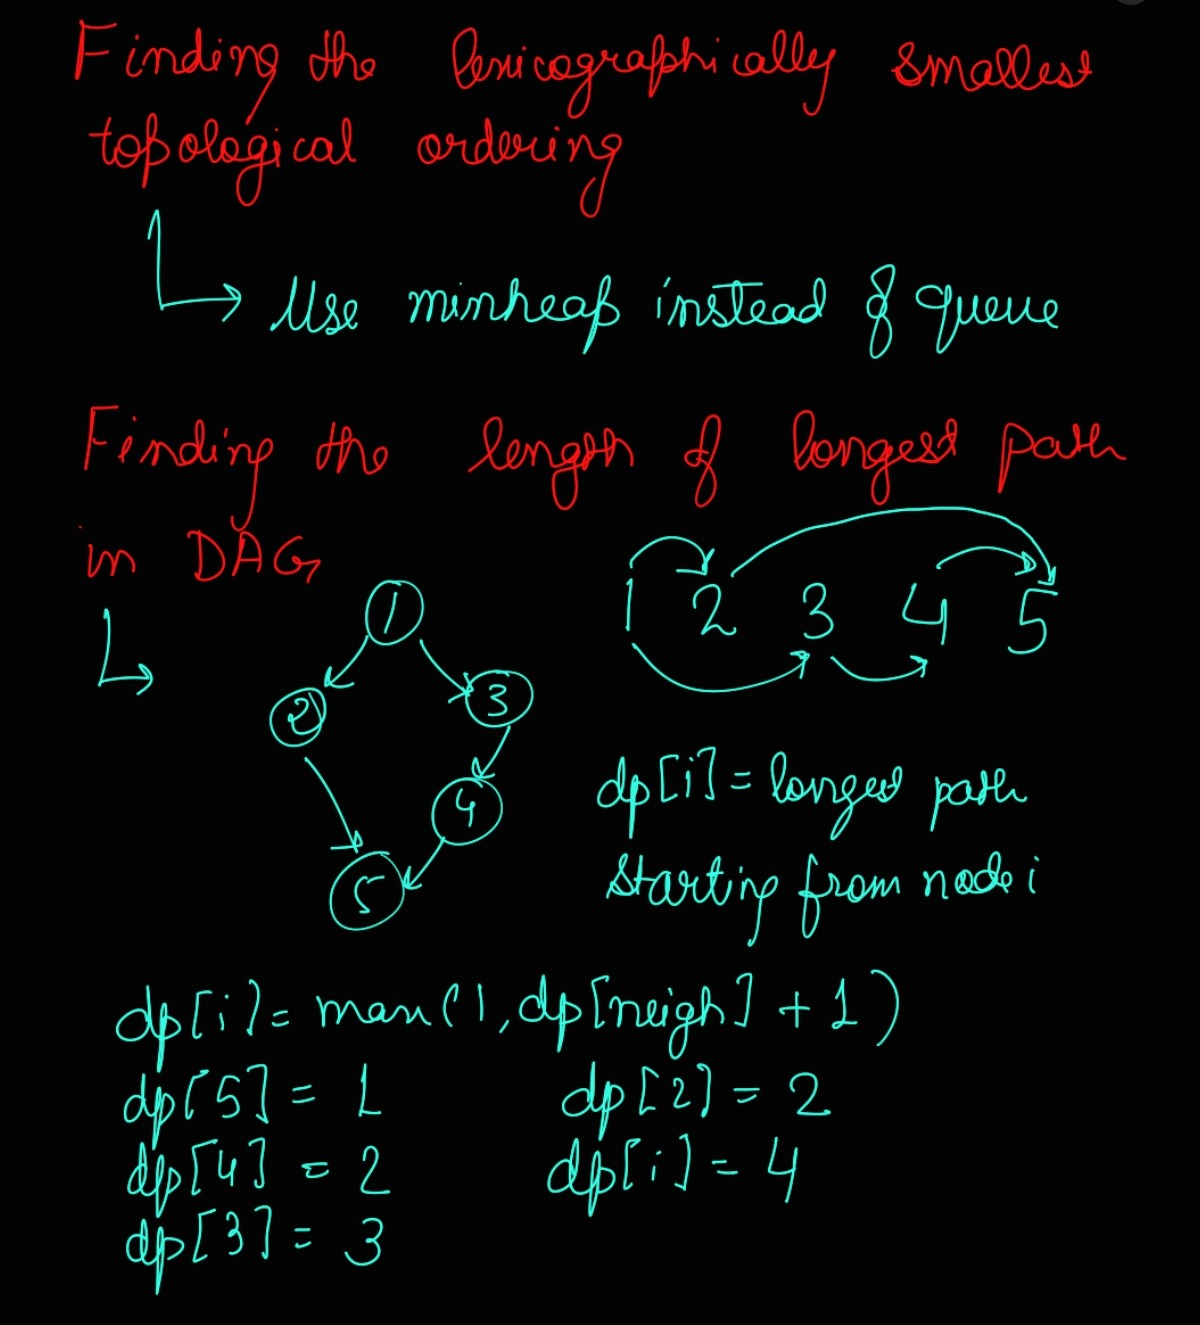 Finding the lexicographically smallest
topological ordering
Use minheap instead of queue
Finding the length of longest path
in DAG
1 2 3 4 5
1
2
3
4
5
dp[i] = longest path
starting from node i
dp[i] = max(1, dp[neigh] + 1)
dp[5] = 1 dp[2] = 2
dp[4] = 2 dp[i] = 4
dp[3] = 3